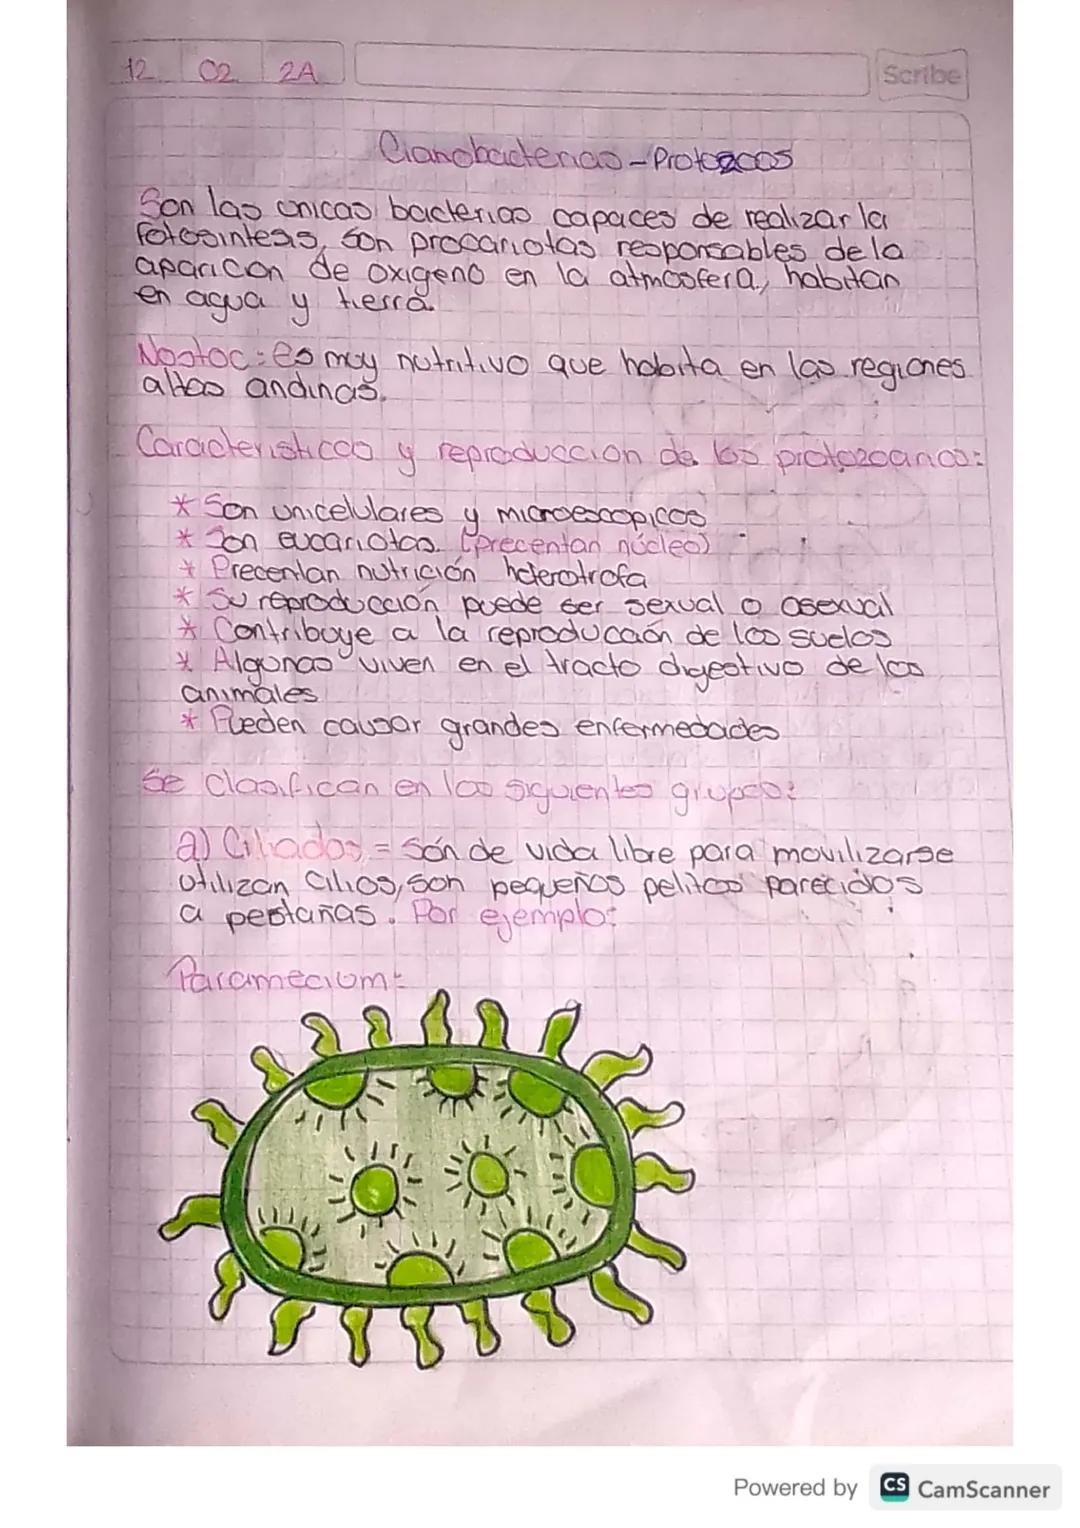 12 02 2A
Scribe
Cianobacterias - Protozoos
Son las unicas bacterias capaces de realizar la
fotosintesis, son procariotas responsables de la
aparicon de oxigeno en la atmosfera, habitan
en agua y tierra.
Nostoc: es muy nutritivo que habita en las regiones
altas andinas.
Caracteristicas y reproduccion de los protozoarios:
* Son unicelulares y microescopicos
* Son eucariotas. (precentan núcleo)
* Precentan nutrición heterotrofa
* Su reproducción puede ser sexual o asexual
* Contribuye a la reproducción de los suelos
* Algunos viven en el tracto digestivo de los
animales
* Pueden causar grandes enfermedades
Se clasifican en los siguientes grupos:
a) Ciliados = Són de vida libre para movilizarse
utilizan cilios, son pequeños pelitos parecidos
a pestañas. Por ejemplo:
Paramecium:
Powered by CS CamScanner